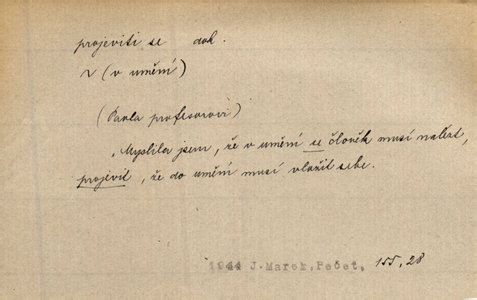 projeviti se dok.
v (v umění)
(Pavla profesorovi)
„Myslila jsem, že v umění se člověk musí nalézt,
projevit, že do umění musí vložit sebe.
1944 J.Marek,Pečeť, 155, 28